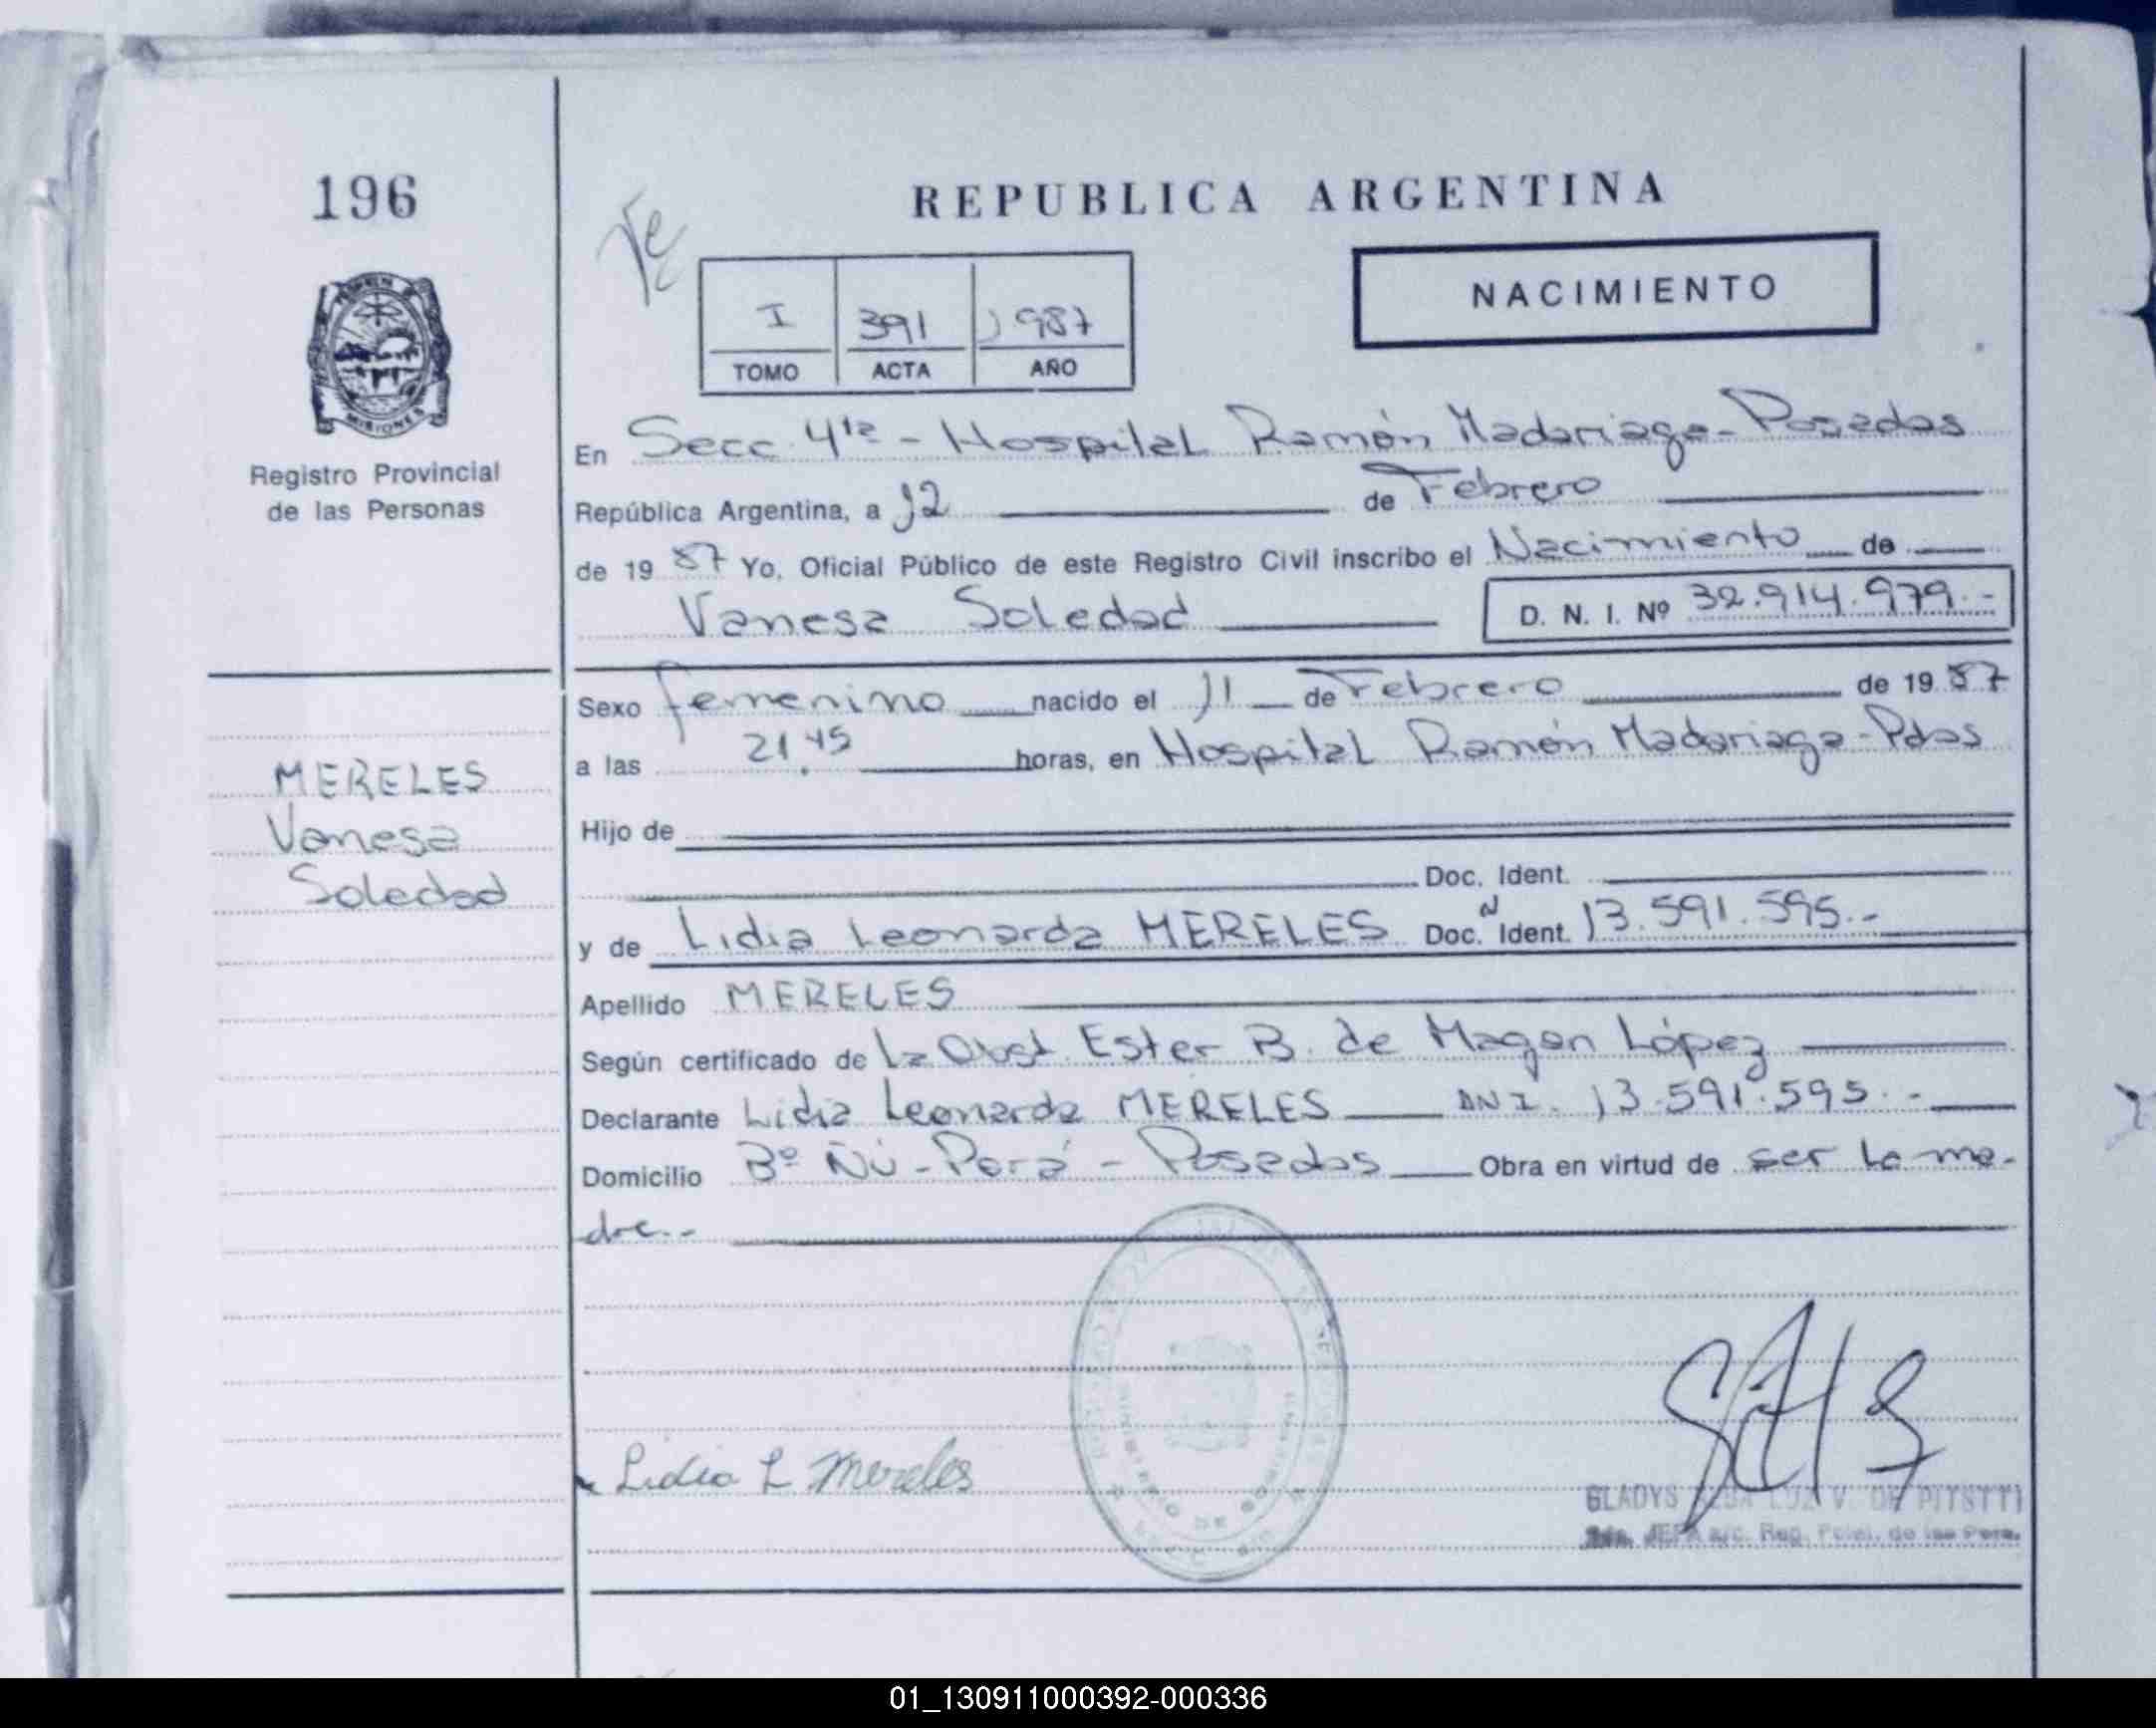 196
REPUBLICA ARGENTINA
NACIMIENTO
I 391 1987
TOMO ACTA AÑO
MISIONES
Registro Provincial
de las Personas
En Secc. 4ta - Hospital Ramón Madariaga - Posadas
República Argentina, a 12 de Febrero
de 19 87 Yo, Oficial Público de este Registro Civil inscribo el Nacimiento de
Vanesa Soledad D. N. I. Nº 32.914.979.-
Sexo femenino nacido el 11 de Febrero de 19 87
a las 21.45 horas, en Hospital Ramón Madariaga - Pdas
MERELES
Vanesa
Soledad
Hijo de
Doc. Ident.
y de Lidia Leonarda MERELES Doc. N Ident. 13.591.595.-
Apellido MERELES
Según certificado de La Obst. Ester B. de Magan López
Declarante Lidia Leonarda MERELES DNI. 13.591.595.-
Domicilio Bº Ñú - Porá - Posadas Obra en virtud de ser la ma-
dre.-
MINISTERIO DE GOBIERNO
Lidia L Mereles
GLADYS LUZ V. DE
JEFA a/c. Reg. de las Pers.
01_130911000392-000336